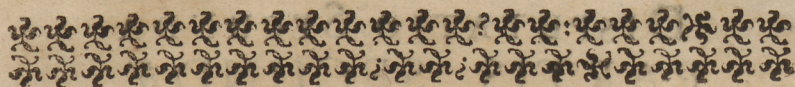 ? :
; ;